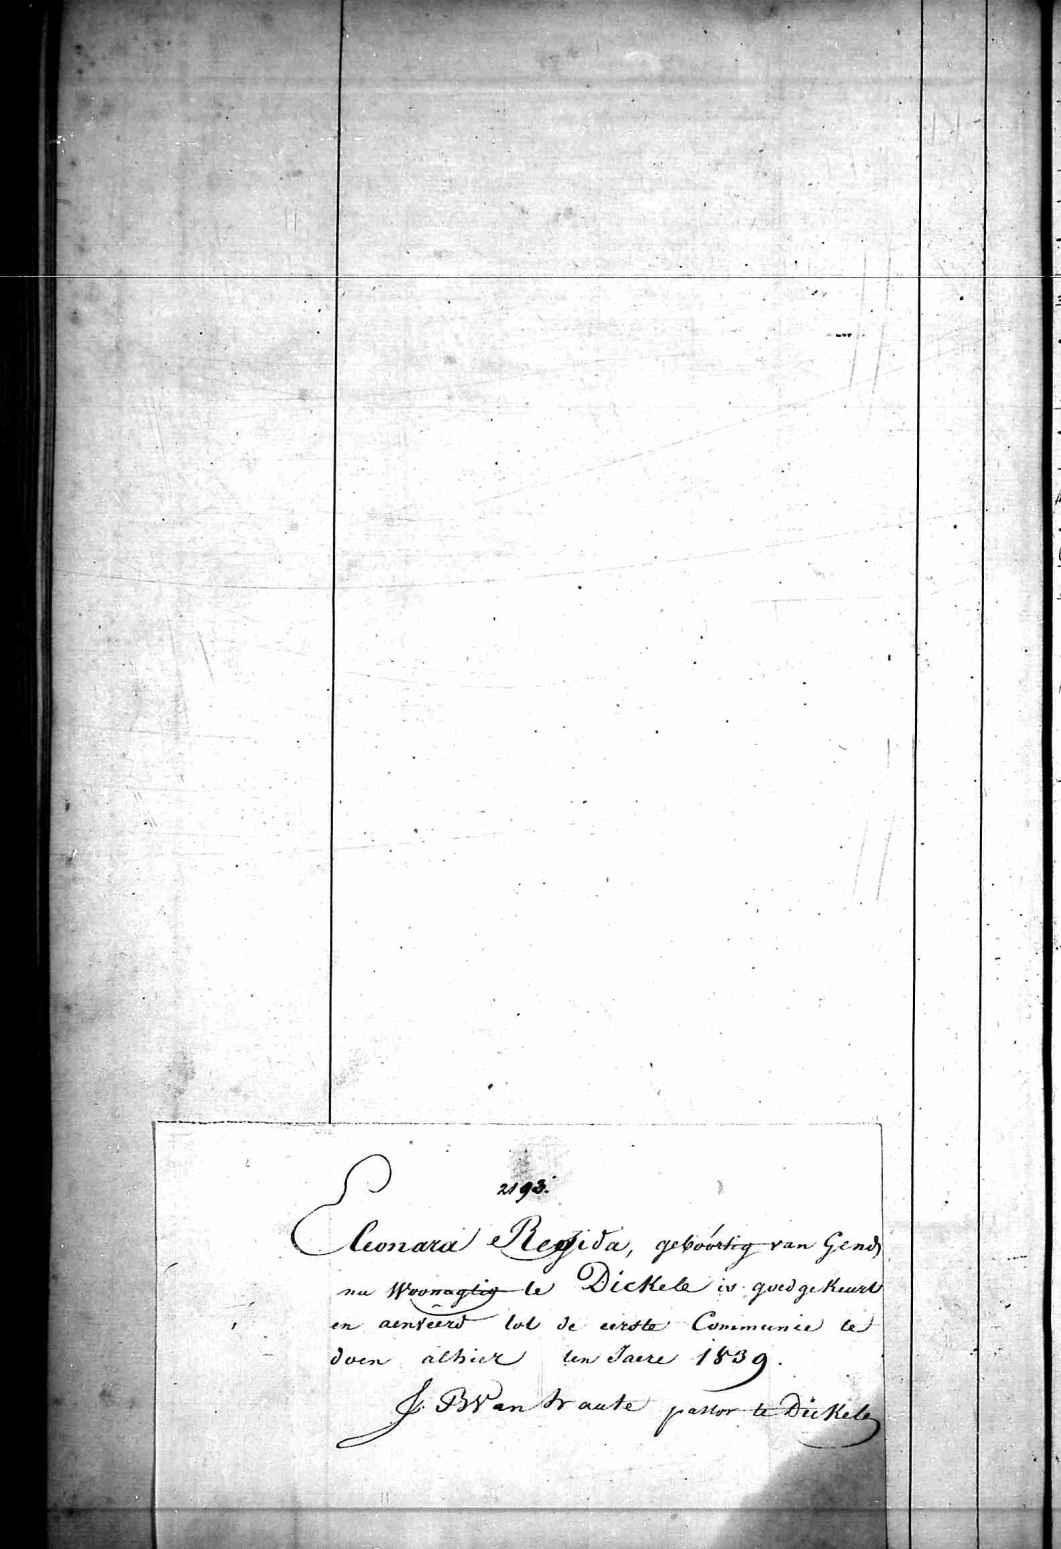 2193.
Eleonara Regida, geboórtig van Gend,
nu Woonagtig te Dickele is goedgekeurt
en aenveêrd tot de eerste Communie te
doen alhier ten Jaere 1839.
J. B Van traute pastor te Dickele